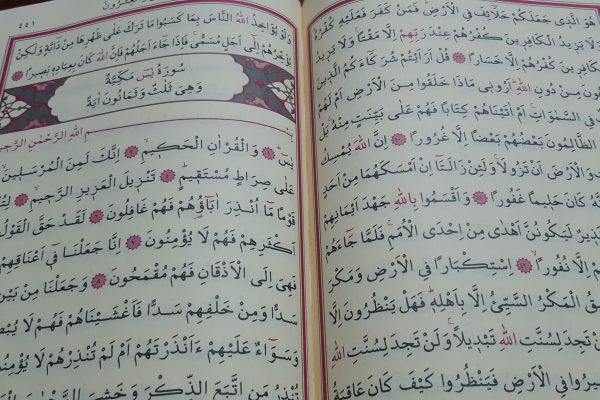 هُوَ الَّذِي جَعَلَكُمْ خَلَائِفَ فِي الْاَرْضِ فَمَنْ كَفَرَ فَعَلَيْهِ كُفْرُهُ
وَلَا يَزِيدُ الْكَافِرِينَ كُفْرُهُمْ عِنْدَ رَبِّهِمْ اِلَّا مَقْتًا وَلَا يَزِيدُ
الْكَافِرِينَ كُفْرُهُمْ اِلَّا خَسَارًا قُلْ اَرَاَيْتُمْ شُرَكَاءَكُمُ الَّذِينَ
مِنْ دُونِ اللّٰهِ اَرُونِي مَاذَا خَلَقُوا مِنَ الْاَرْضِ اَمْ لَهُمْ
فِي السَّمٰوَاتِ اَمْ اٰتَيْنَاهُمْ كِتَابًا فَهُمْ عَلٰى بَيِّنَتٍ مِنْهُ بَلْ
الظَّالِمُونَ بَعْضُهُمْ بَعْضًا اِلَّا غُرُورًا اِنَّ اللّٰهَ يُمْسِكُ
وَالْاَرْضَ اَنْ تَزُولَا وَلَئِنْ زَالَتَا اِنْ اَمْسَكَهُمَا مِنْ اَحَدٍ
كَانَ حَلِيمًا غَفُورًا وَاَقْسَمُوا بِاللّٰهِ جَهْدَ اَيْمَانِهِمْ
لَيَكُونُنَّ اَهْدٰى مِنْ اِحْدَى الْاُمَمِ فَلَمَّا جَاءَهُمْ
اِلَّا نُفُورًا اسْتِكْبَارًا فِي الْاَرْضِ وَمَكْرَ
الْمَكْرُ السَّيِّئُ اِلَّا بِاَهْلِهِ فَهَلْ يَنْظُرُونَ اِلَّا
تَجِدَ لِسُنَّتِ اللّٰهِ تَبْدِيلًا وَلَنْ تَجِدَ لِسُنَّتِ اللّٰهِ
فِي الْاَرْضِ فَيَنْظُرُوا كَيْفَ كَانَ عَاقِبَةُ
٤٤١
وَلَوْ يُؤَاخِذُ اللّٰهُ النَّاسَ بِمَا كَسَبُوا مَا تَرَكَ عَلٰى ظَهْرِهَا مِنْ دَابَّةٍ وَلٰكِنْ
يُؤَخِّرُهُمْ اِلٰى اَجَلٍ مُسَمًّى فَاِذَا جَاءَ اَجَلُهُمْ فَاِنَّ اللّٰهَ كَانَ بِعِبَادِهِ بَصِيرًا
سُورَةُ يٰسٓ مَكِّيَّةٌ
وَهِيَ ثَلٰثٌ وَثَمَانُونَ اٰيَةً
بِسْمِ اللّٰهِ الرَّحْمٰنِ الرَّحِيمِ
يٰسٓ وَالْقُرْاٰنِ الْحَكِيمِ اِنَّكَ لَمِنَ الْمُرْسَلِينَ
عَلٰى صِرَاطٍ مُسْتَقِيمٍ تَنْزِيلَ الْعَزِيزِ الرَّحِيمِ
قَوْمًا مَا اُنْذِرَ اٰبَاؤُهُمْ فَهُمْ غَافِلُونَ لَقَدْ حَقَّ الْقَوْلُ
اَكْثَرِهِمْ فَهُمْ لَا يُؤْمِنُونَ اِنَّا جَعَلْنَا فِي اَعْنَاقِهِمْ
فَهِيَ اِلَى الْاَذْقَانِ فَهُمْ مُقْمَحُونَ وَجَعَلْنَا مِنْ بَيْنِ
سَدًّا وَمِنْ خَلْفِهِمْ سَدًّا فَاَغْشَيْنَاهُمْ فَهُمْ لَا
وَسَوَاءٌ عَلَيْهِمْ ءَاَنْذَرْتَهُمْ اَمْ لَمْ تُنْذِرْهُمْ لَا يُؤْمِنُونَ
تُنْذِرُ مَنِ اتَّبَعَ الذِّكْرَ وَخَشِيَ الرَّحْمٰنَ